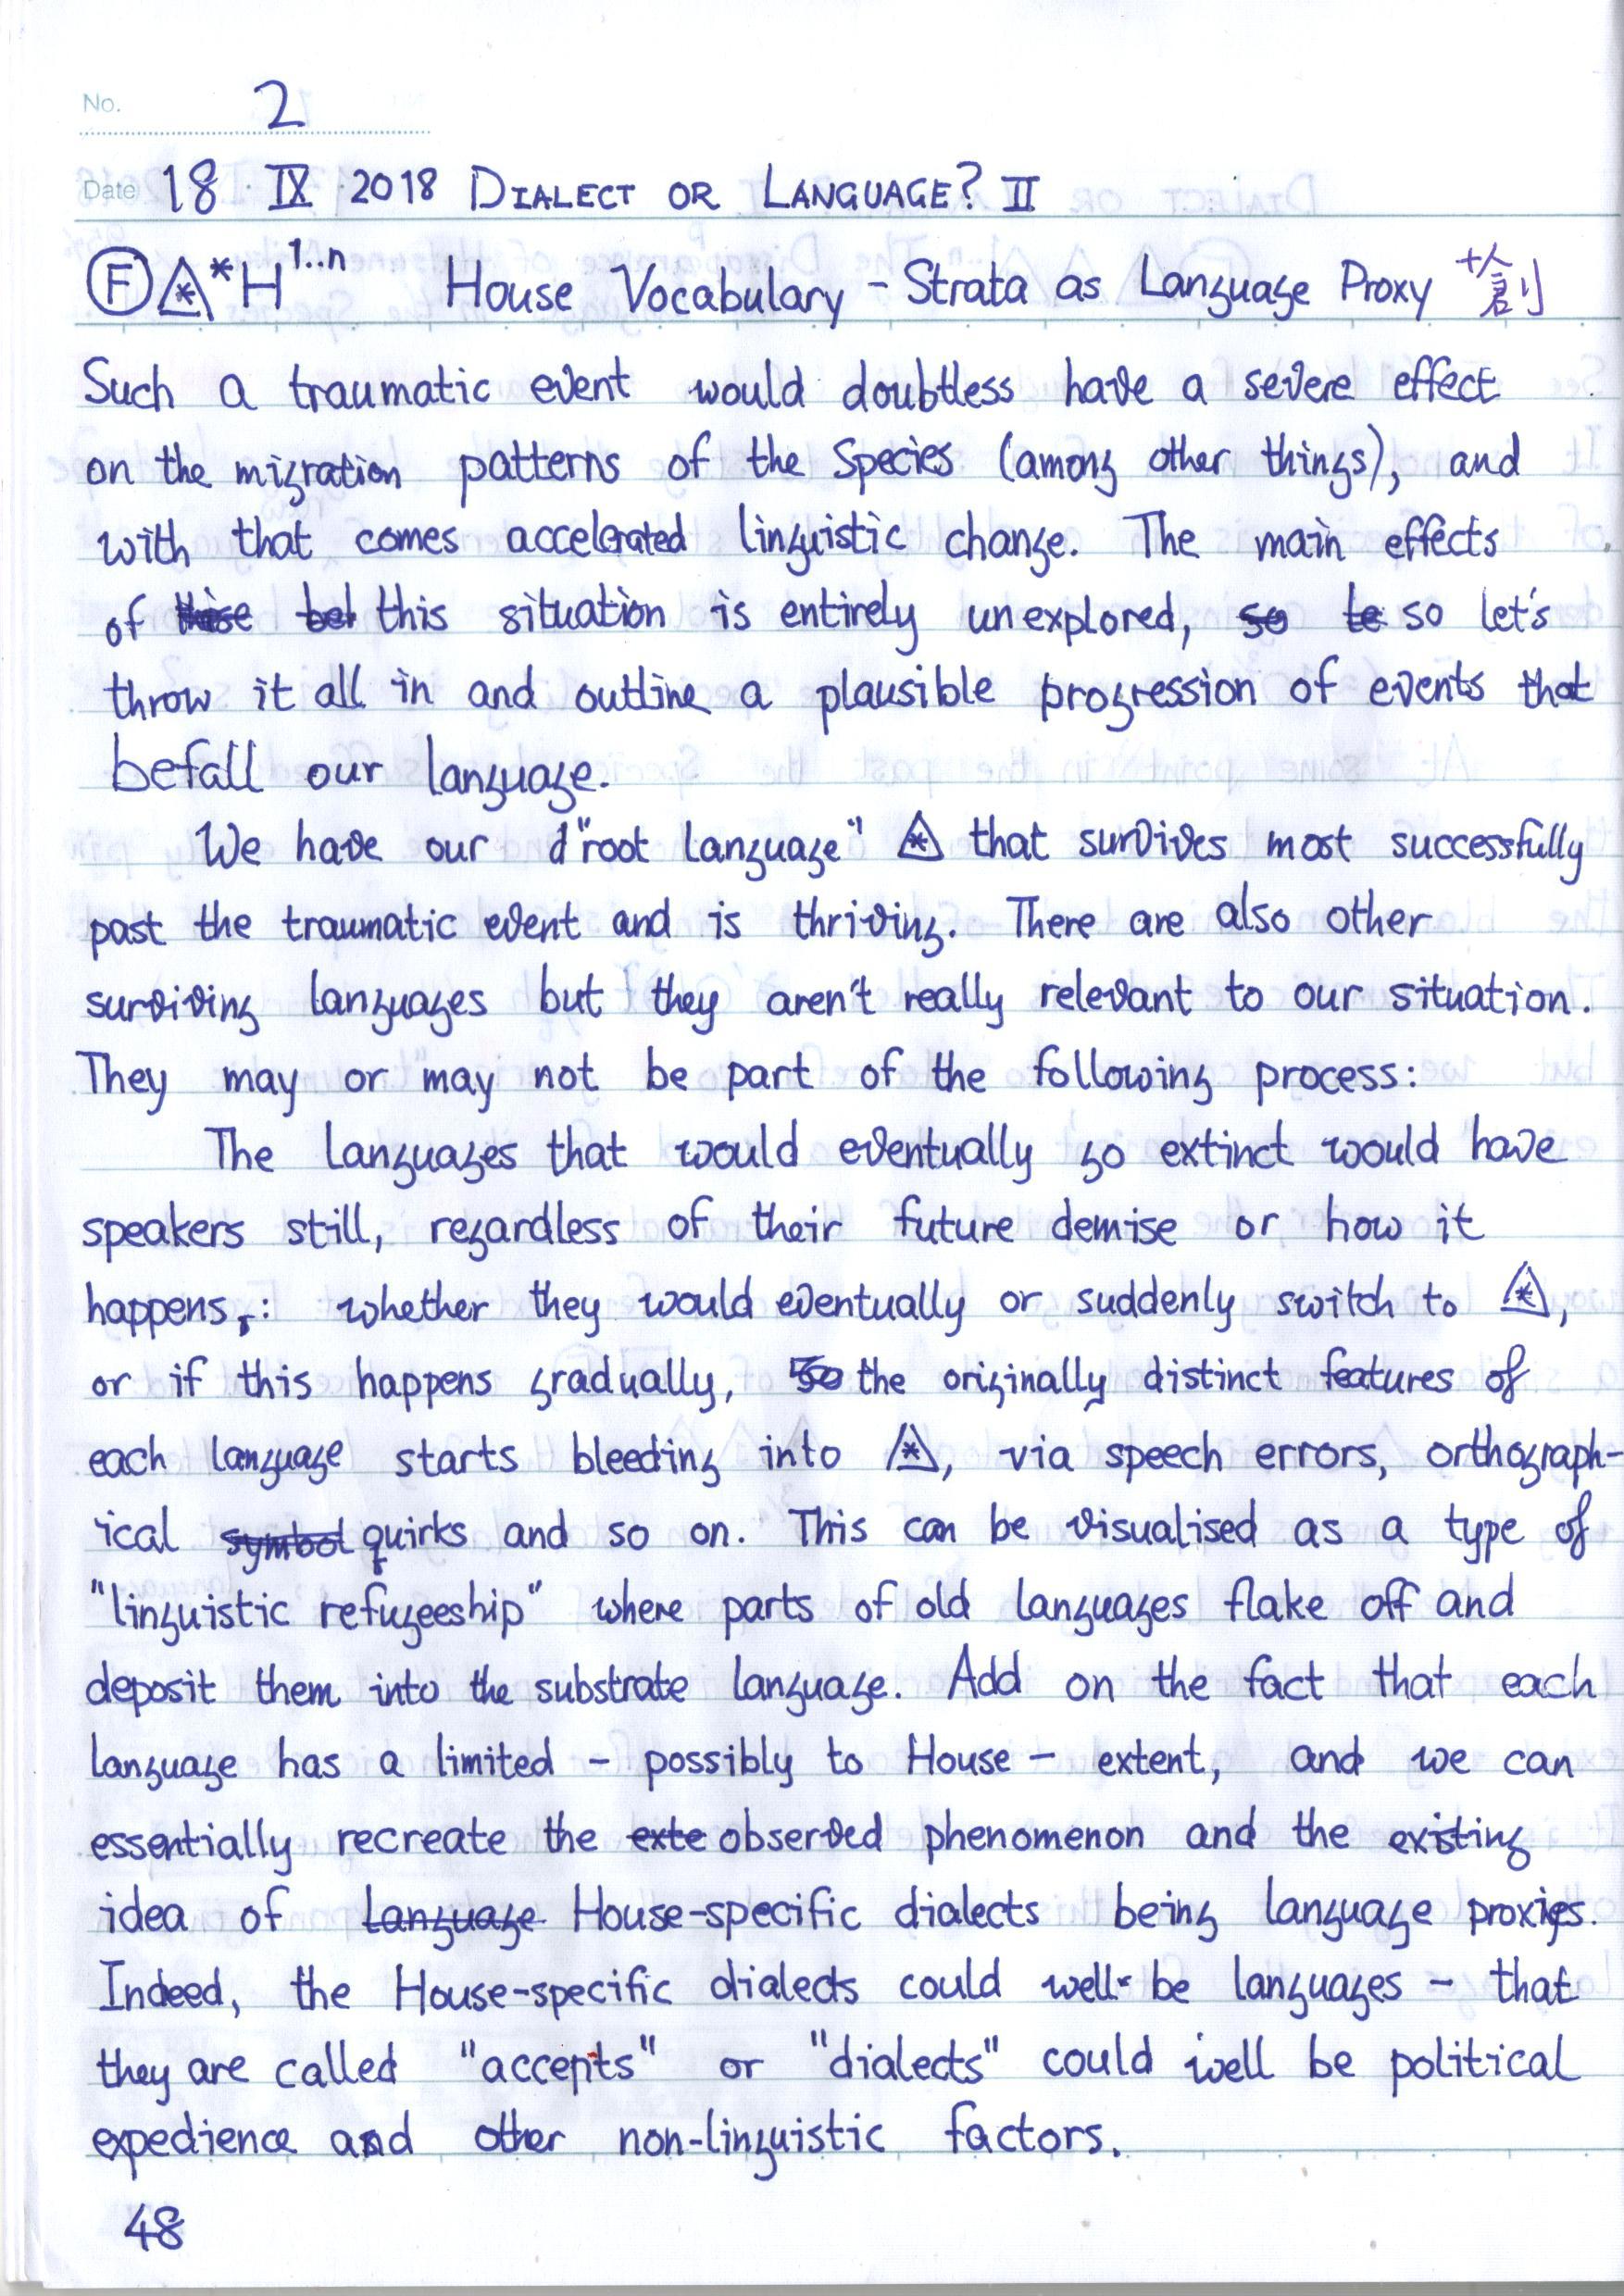 No. 2
Date 18 IX 2018 DIALECT OR LANGUAGE? II
Ⓕ ⟁*H 1..n House Vocabulary - Strata as Language Proxy +創
Such a traumatic event would doubtless have a severe effect
on the migration patterns of the Species (among other things), and
with that comes accelerated linguistic change. The main effects
of this situation is entirely unexplored, so let's
throw it all in and outline a plausible progression of events that
befall our language.
We have our "root language" that survives most successfully
past the traumatic event and is thriving. There are also other
surviving languages but they aren't really relevant to our situation.
They may or may not be part of the following process:
The languages that would eventually go extinct would have
speakers still, regardless of their future demise or how it
happens: whether they would eventually or suddenly switch to ,
or if this happens gradually, the originally distinct features of
each language starts bleeding into , via speech errors, orthograph-
ical quirks and so on. This can be visualised as a type of
"linguistic refugeeship" where parts of old languages flake off and
deposit them into the substrate language. Add on the fact that each
language has a limited - possibly to House - extent, and we can
essentially recreate the observed phenomenon and the existing
idea of House-specific dialects being language proxies.
Indeed, the House-specific dialects could well be languages - that
they are called "accents" or "dialects" could well be political
expedience and other non-linguistic factors.
48